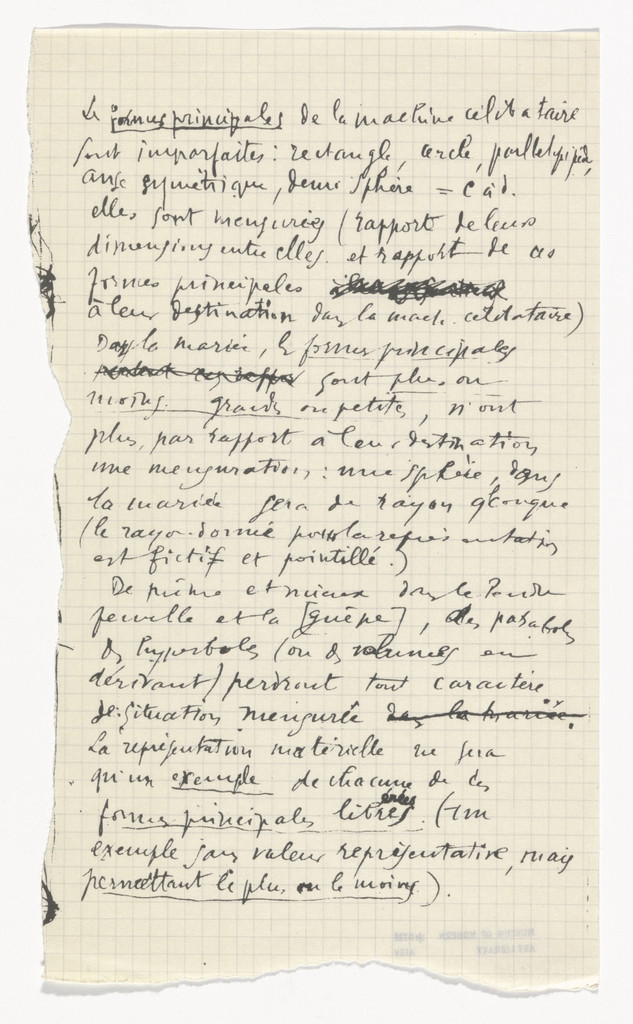 Les formes principales de la machine célibataire
sont imparfaites : rectangle, cercle, parallélépipède,
anse symétrique, demi sphère = c à d.
elles sont mensurées (rapport de leurs
dimensions entre elles. et rapport de ces
formes principales
à leur destination dans la mach. célibataire)
Dans la mariée, les formes principales
sont plus ou
moins grandes ou petites, n'ont
plus, par rapport à leur destination
une mensuration : une sphère, dans
la mariée sera de rayon qlconque
(le rayon donné pour la représentation
est fictif et pointillé.)
De même et mieux dans le Pendu
femelle et la [guêpe], des paraboles
des hyperboles (ou des volumes en
dérivant) perdront tout caractère
de situation mensurée dans la mariée.
La représentation matérielle ne sera
qu'un exemple de chacune de ces
formes principales libérées. (un
exemple sans valeur représentative, mais
permettant le plus ou le moins).